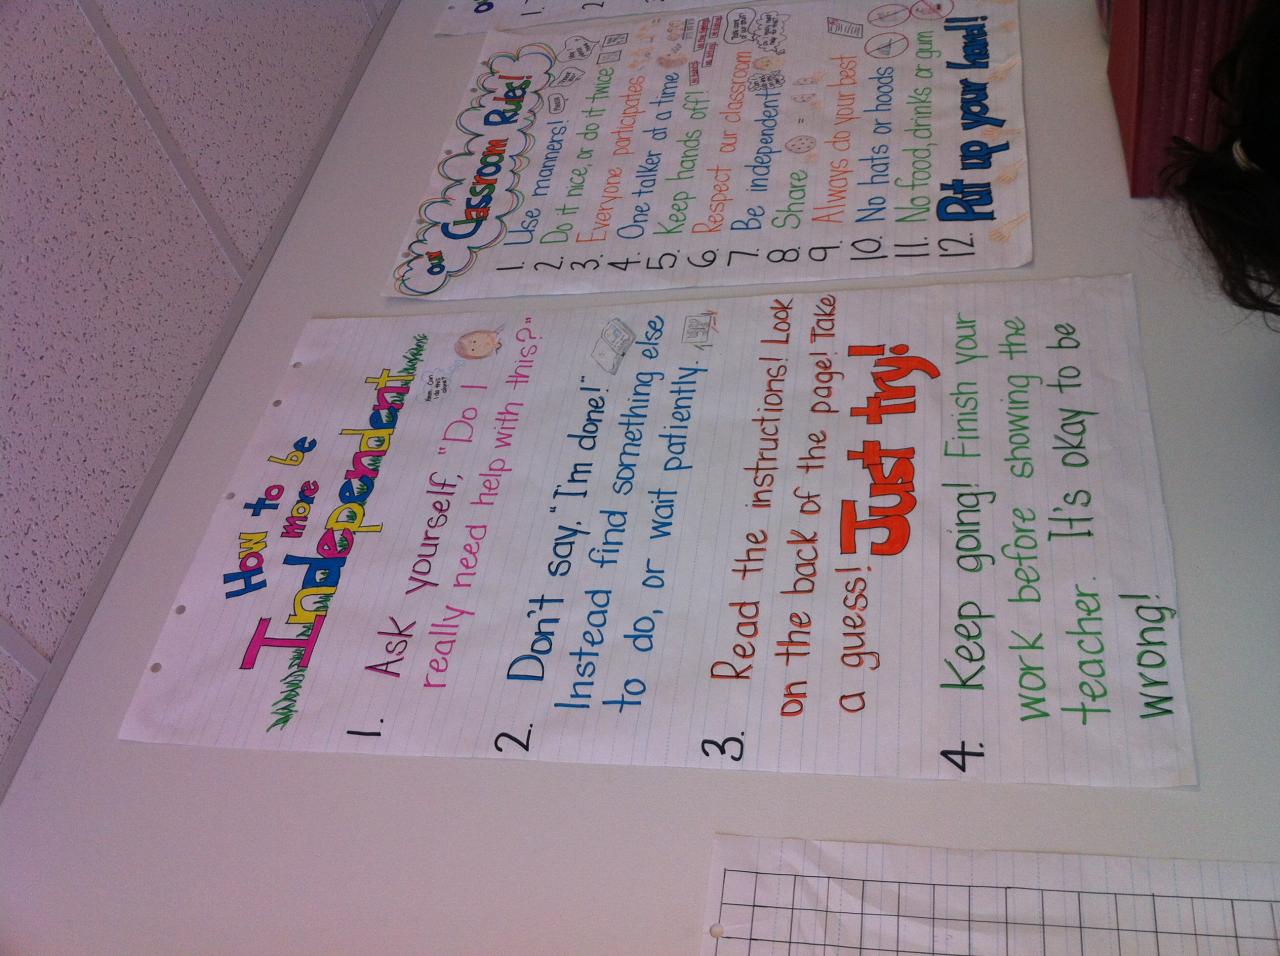 How to be
more
Independent
1. Ask yourself, "Do I
really need help with this?"
2. Don't say, "I'm done!"
Instead find something else
to do, or wait patiently.
3. Read the instructions! Look
on the back of the page! Take
a guess! Just try!
4. Keep going! Finish your
work before showing the
teacher. It's okay to be
wrong!
Our Classroom Rules!
1. Use manners!
2. Do it nice, or do it twice
3. Everyone participates
4. One talker at a time
5. Keep hands off!
6. Respect our classroom
7. Be independent
8. Share =
9. Always do your best
10. No hats or hoods
11. No food, drinks or gum
12. Put up your hand!